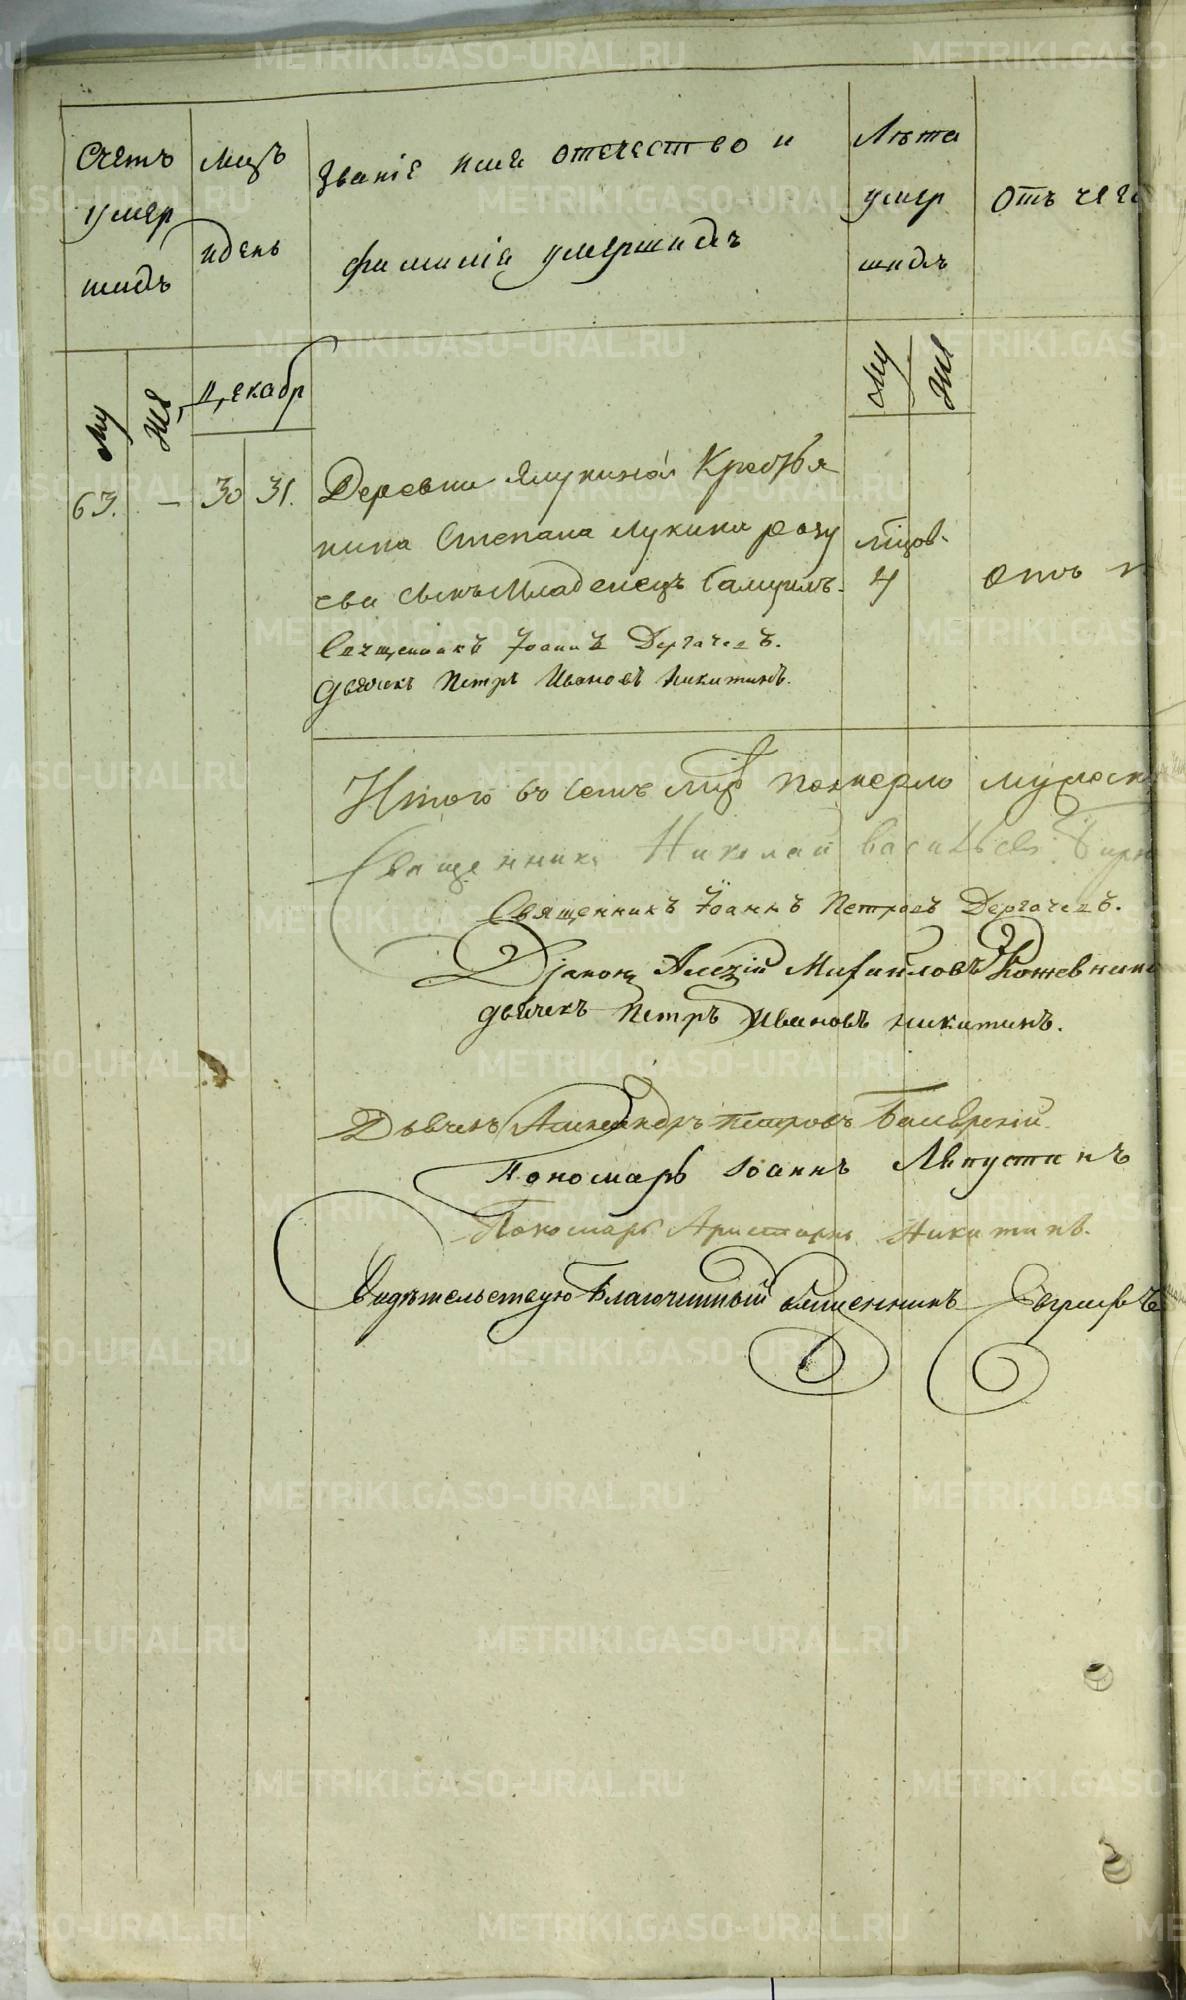 Счетъ умер шихъ
Мцъ и день
Званіе имя отечество и
фамилія умершихъ
Лѣта умер шихъ
Отъ чего
му
же
Декабр
му
же
63. — 30 31.
Деревни Ялуниной Крестья
нина Степана Лукина
сынъ Младенецъ Самуилъ.
мцов.
4
отъ
Священникъ Іоаннъ Дергачевъ.
Дьячекъ Петръ Ивановъ Никитинъ.
Итого въ семъ мцѣ померло мужеск
Священникъ Николай Васильевъ
Священникъ Іоаннъ Петровъ Дергачевъ.
Діаконъ Алексій Михайловъ Кожевник
дьячекъ Петръ Ивановъ Никитинъ.
Дьячекъ Александръ Петровъ
Пономарь Іоаннъ Лепустинъ
Пономарь Аристархъ Никитинъ.
Свидѣтельствую Благочинный священникъ
METRIKI.GASO-URAL.RU